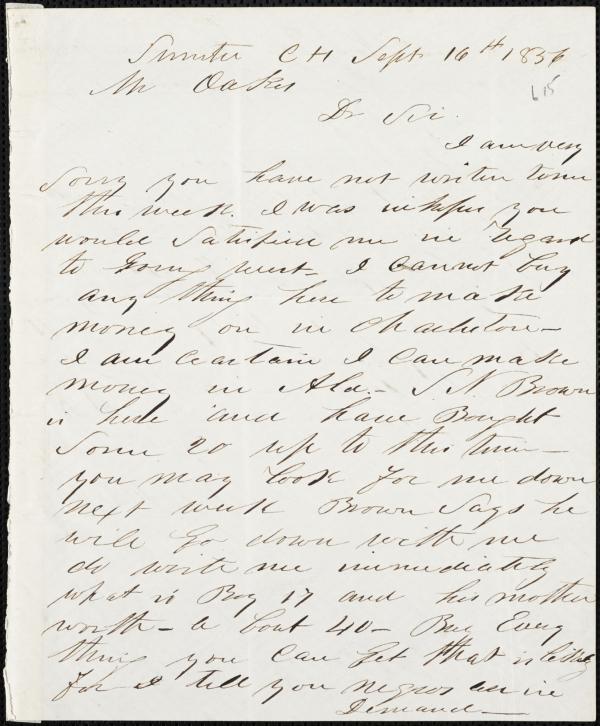 Sumter C H Sept 16th 1856
Mr Oakes
615
Dr Sir.
I am very
Sorry you have not writen to me
this week. I was in hopes you
would Satisfied me in Regard
to Going west - I cannot buy
any thing here to make
money on in Charleston -
I am ceartain I can make
money in Ala - S. N. Brown
is here and have Bought
Some 20 up to this time -
you may look for me down
next week Brown Says he
will Go down with me
do write me immediately
what is Boy 17 and his mother
worth - a bout 40 - Buy Every
thing you can Get that is likely
for I tell you negros are in
Demand -